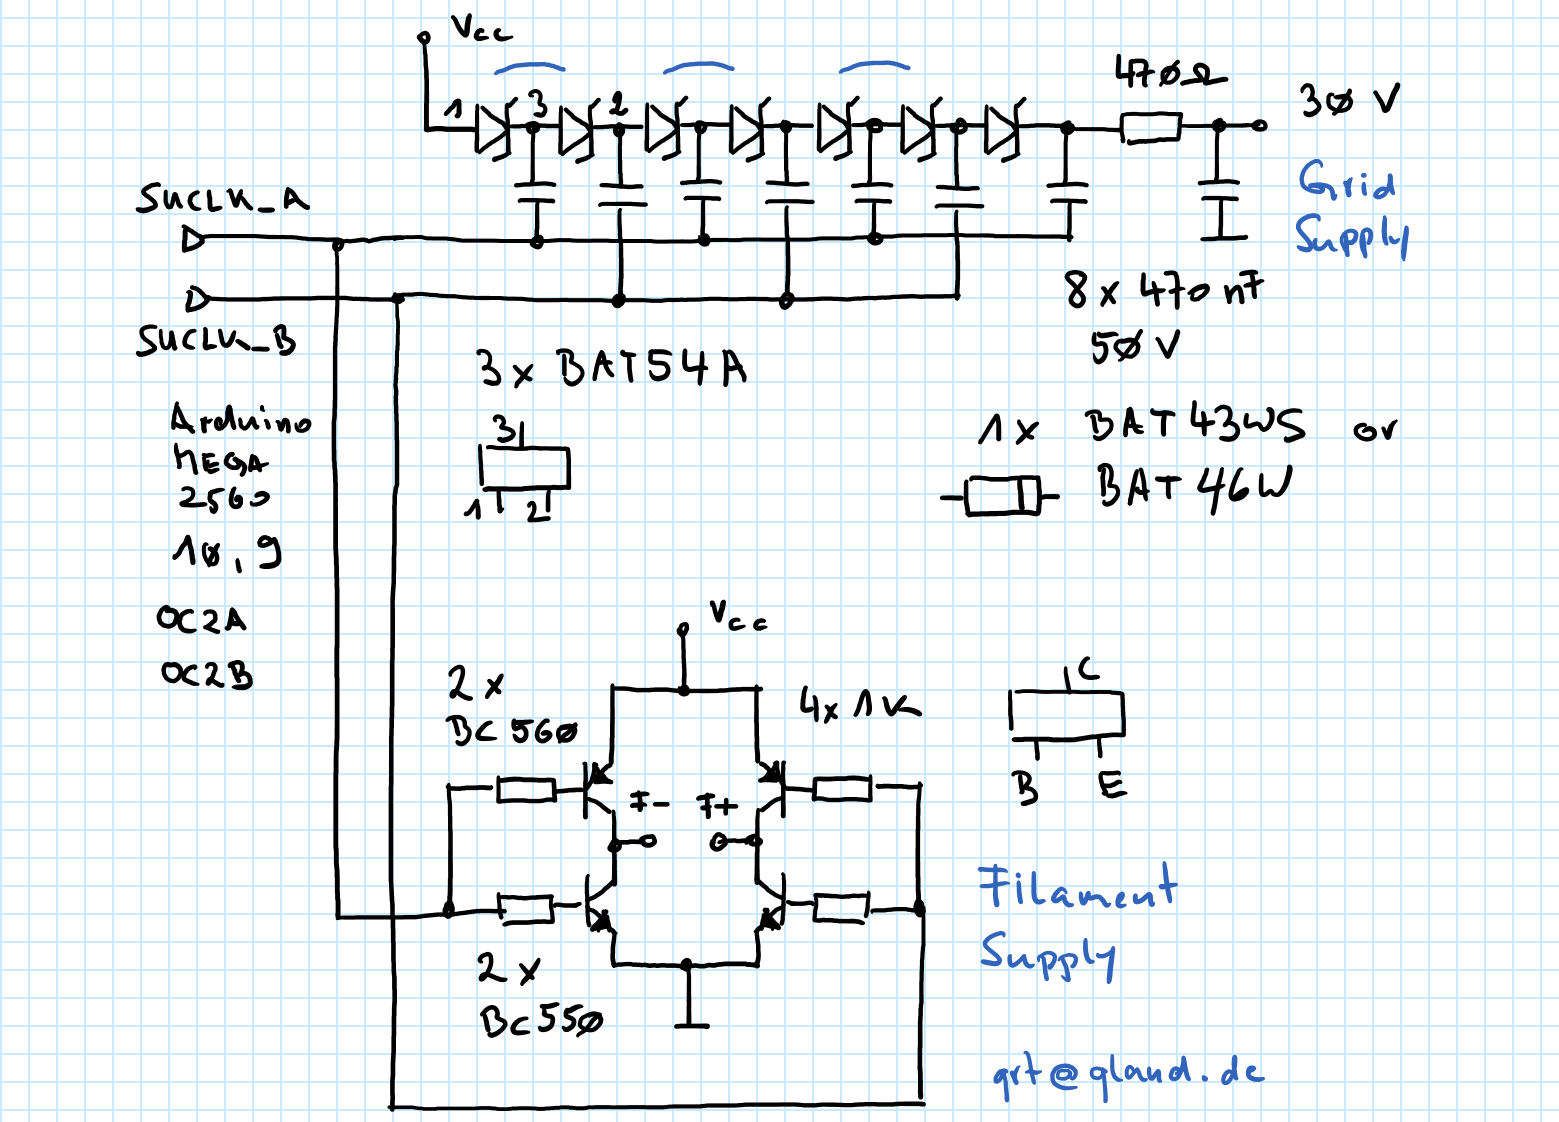 Vcc
1 3 2
470Ω
30 V
Grid
Supply
SUCLK_A
SUCLK_B
8 x 470 nF
50 V
3 x BAT54A
3
1 2
1 x BAT43WS or
BAT46W
Arduino
MEGA
2560
10, 9
OC2A
OC2B
Vcc
2 x
BC560
4x 1K
C
B E
F- F+
Filament
Supply
2 x
BC550
grt@qland.de